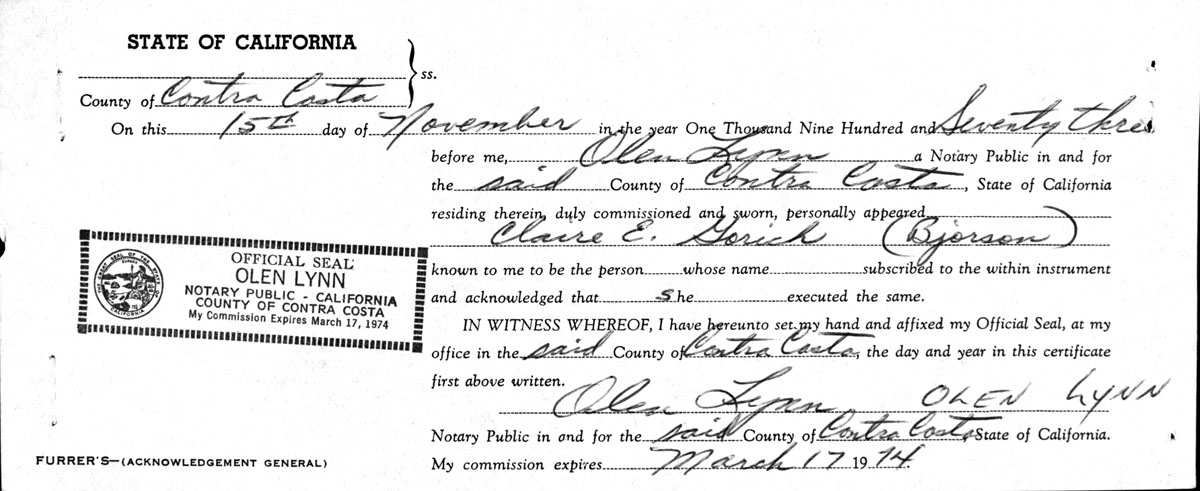 STATE OF CALIFORNIA
ss.
County of Contra Costa
On this 15th day of November in the year One Thousand Nine Hundred and Seventy three
before me, Olen Lynn a Notary Public in and for
the said County of Contra Costa, State of California
residing therein, duly commissioned and sworn, personally appeared
Claire E. Gorich (Bjorson)
known to me to be the person whose name subscribed to the within instrument
and acknowledged that she executed the same.
IN WITNESS WHEREOF, I have hereunto set my hand and affixed my Official Seal, at my
office in the said County of Contra Costa, the day and year in this certificate
first above written.
Olen Lynn OLEN LYNN
Notary Public in and for the said County of Contra Costa, State of California.
My commission expires March 17 1974
OFFICIAL SEAL
OLEN LYNN
NOTARY PUBLIC - CALIFORNIA
COUNTY OF CONTRA COSTA
My Commission Expires March 17, 1974
FURRER'S—(ACKNOWLEDGEMENT GENERAL)